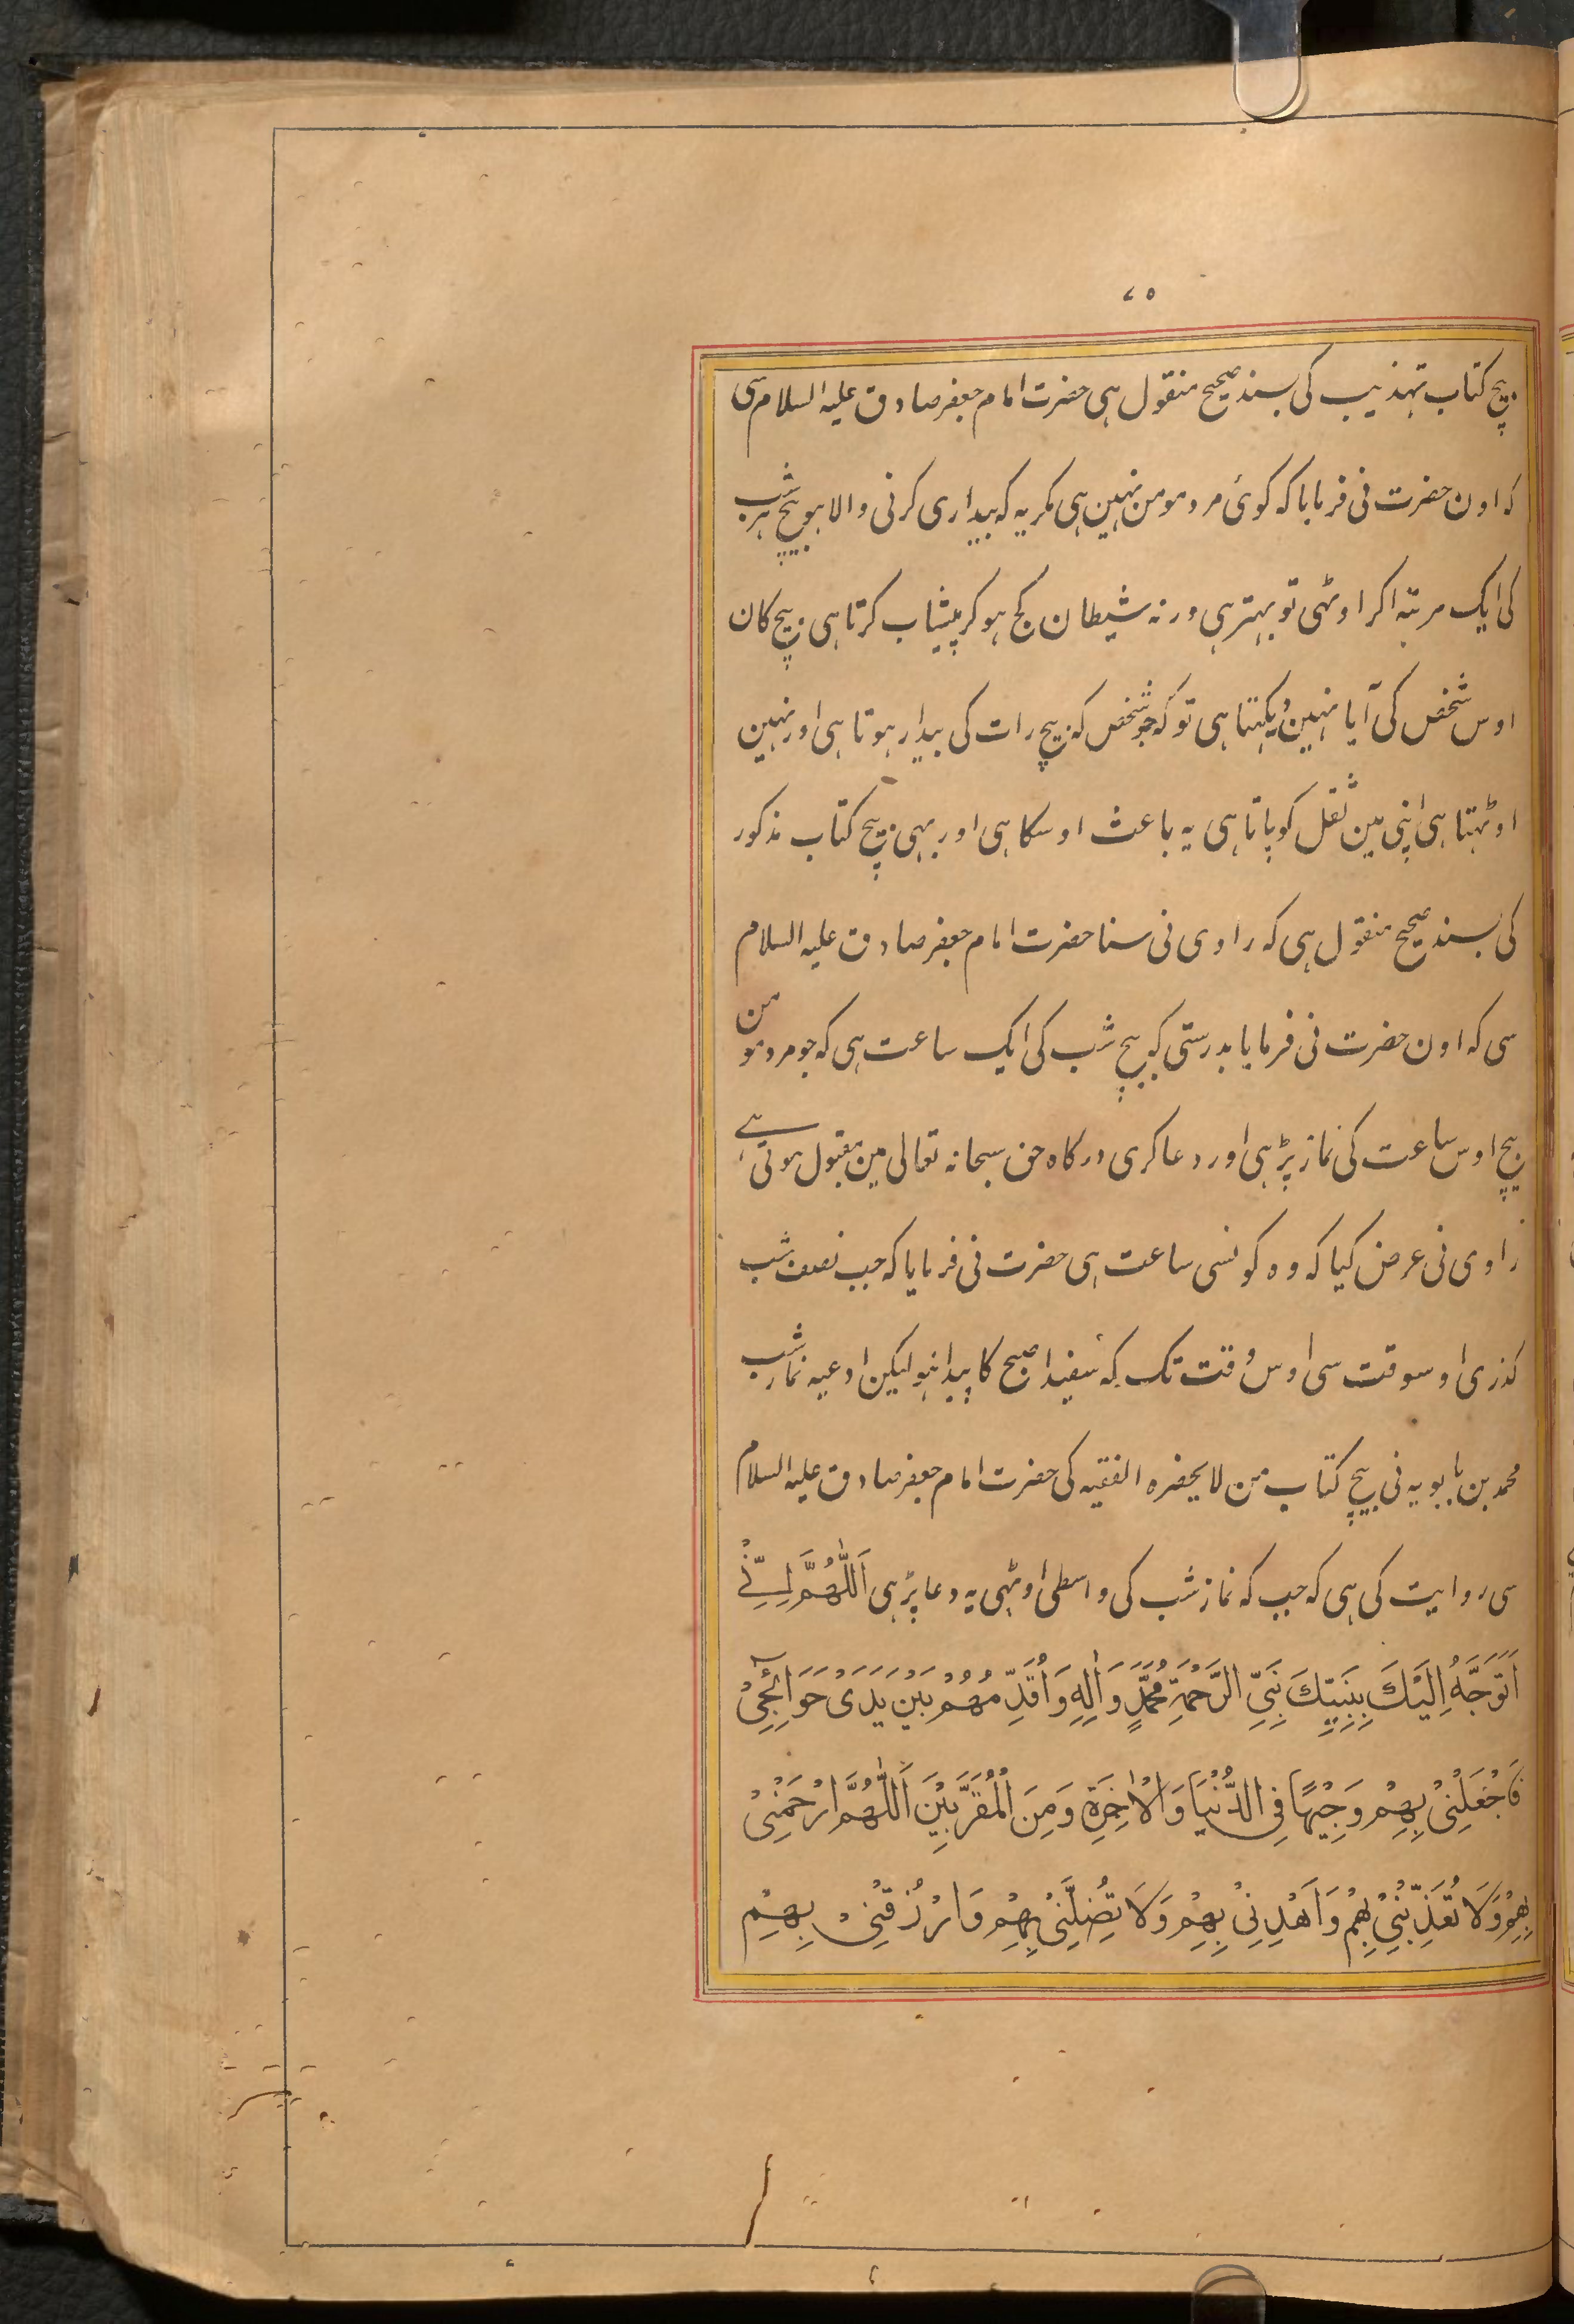 ٧٥
بیچ کتاب تہذیب کی بسند صحیح منقول ہی حضرت امام جعفر صادق علیہ السلام سی
کہ اون حضرت نی فرمایا کہ کوئی مرد مومن نہین ہی مکر یہ کہ بیداری کرنی والا ہو بیچ ہر شب
کی ایک مرتبہ اکر اوٹہی تو بہتر ہی ورنہ شیطان کج ہو کر پیشاب کرتا ہی بیچ کان
اوس شخص کی آیا نہین دیکہتا ہی تو کہ جو شخص کہ بیچ رات کی بیدار ہوتا ہی اور نہین
اوٹہتا ہی اپنی مین ثقل کو پاتا ہی یہ باعث اوسکا ہی اور بہی بیچ کتاب مذکور
کی بسند صحیح منقول ہی کہ راوی نی سنا حضرت امام جعفر صادق علیہ السلام
سی کہ اون حضرت نی فرمایا بدرستی کہ بیچ شب کی ایک ساعت ہی کہ جو مرد مومن
بیچ اوس ساعت کی نماز پڑہی اور دعا کری درکاہ حق سبحانہ تعالی مین مقبول ہوتی ہے
راوی نی عرض کیا کہ وہ کونسی ساعت ہی حضرت نی فرمایا کہ جب نصف شب
کذری اوسوقت سی اوس وقت تک کہ سفیدا صبح کا پیدا نہو لیکن ادعیہ نماز شب
محمد بن بابویہ نی بیچ کتاب من لا یحضرہ الفقیہ کی حضرت امام جعفر صادق علیہ السلام
سی روایت کی ہی کہ جب کہ نماز شب کی واسطی اوٹہی یہ دعا پڑہی اَللّٰهُمَّ اِنِّیْ
اَتَوَجَّهُ اِلَیْكَ بِنَبِیِّكَ نَبِیِّ الرَّحْمَةِ مُحَمَّدٍ وَاٰلِهٖ وَاُقَدِّمُهُمْ بَیْنَ یَدَیْ حَوَائِجِیْ
فَاجْعَلْنِیْ بِهِمْ وَجِیْهًا فِی الدُّنْیَا وَالْاٰخِرَةِ وَمِنَ الْمُقَرَّبِیْنَ اَللّٰهُمَّ ارْحَمْنِیْ
بِهِمْ وَلَا تُعَذِّبْنِیْ بِهِمْ وَاهْدِنِیْ بِهِمْ وَلَا تُضِلَّنِیْ بِهِمْ وَارْزُقْنِیْ بِهِمْ